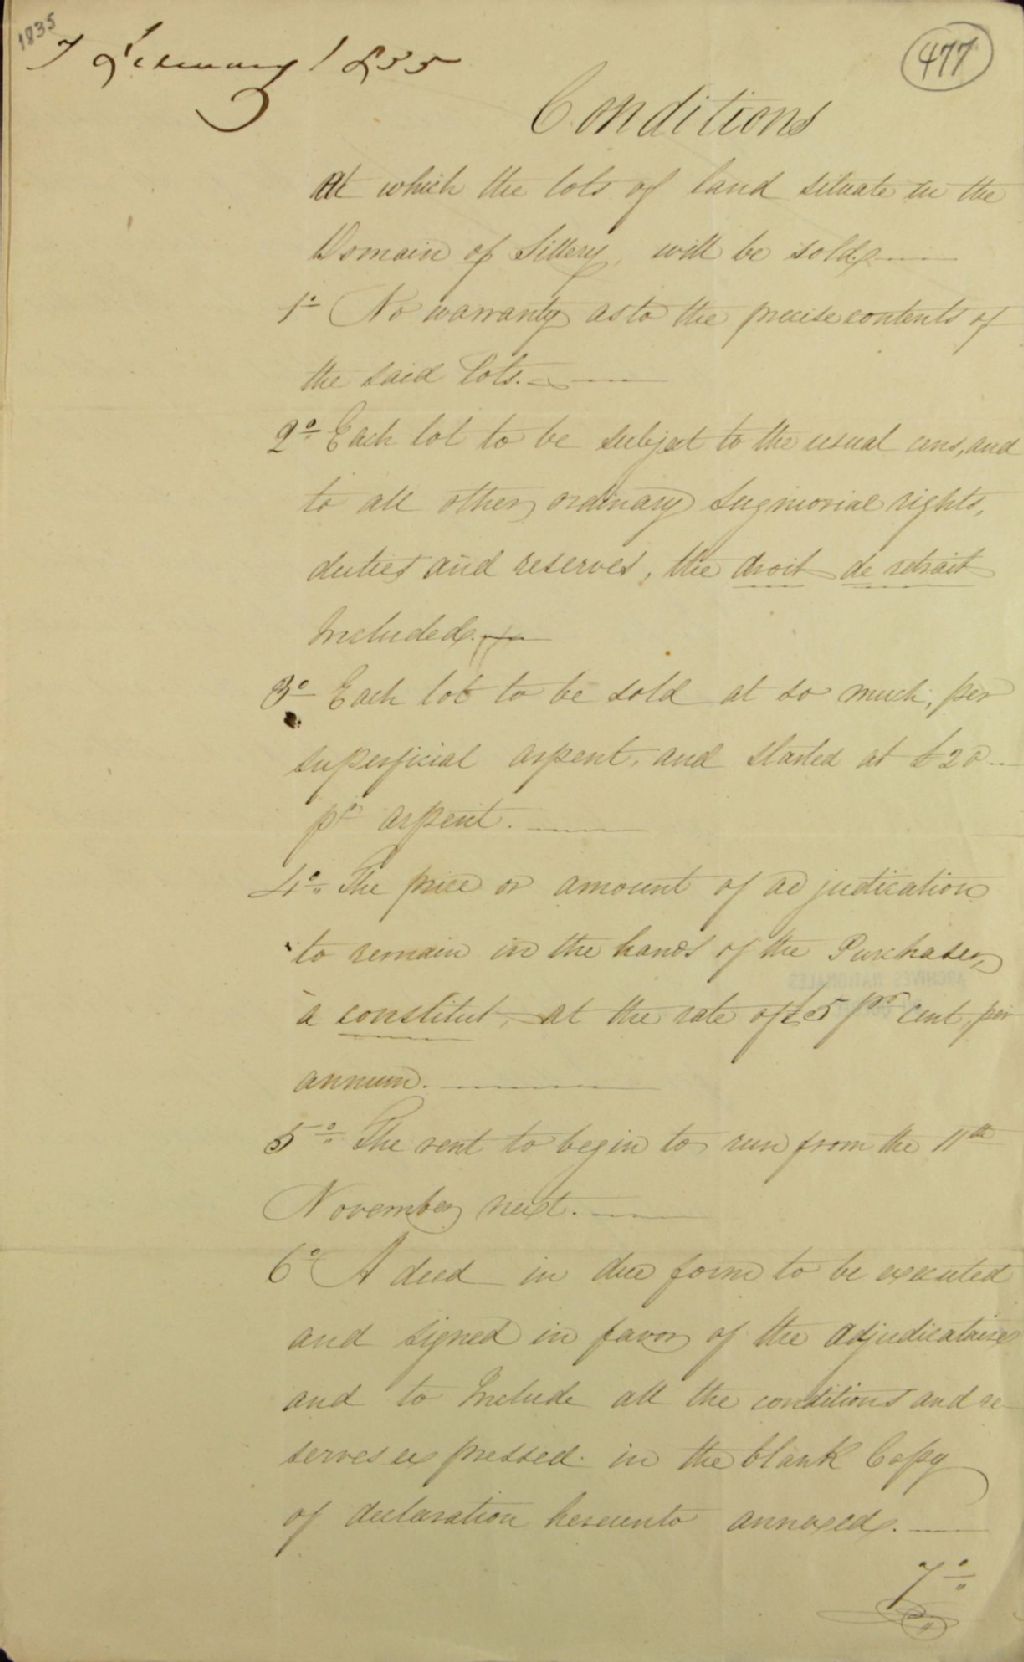 1835
7 February 1835
477
Conditions
At which the lots of land situate in the
Domain of Sillery, will be sold.
1º No warranty as to the precise contents of
the said lots.
2º Each lot to be subject to the usual cens, and
to all other ordinary Seigniorial rights,
duties and reserves, the droit de retrait
Included.
3º Each lot to be sold at so much, per
superficial arpent, and started at £20
pr arpent.
4º The price or amount of adjudication
to remain in the hands of the Purchaser,
à constitut, at the rate of £5 pr cent, per
annum.
5º The rent to begin to run from the 11th
November next.
6º A deed in due form to be executed
and signed in favor of the adjudicataire
and to Include all the conditions and re-
serves expressed in the blank Copy
of declaration hereunto annexed.
7º